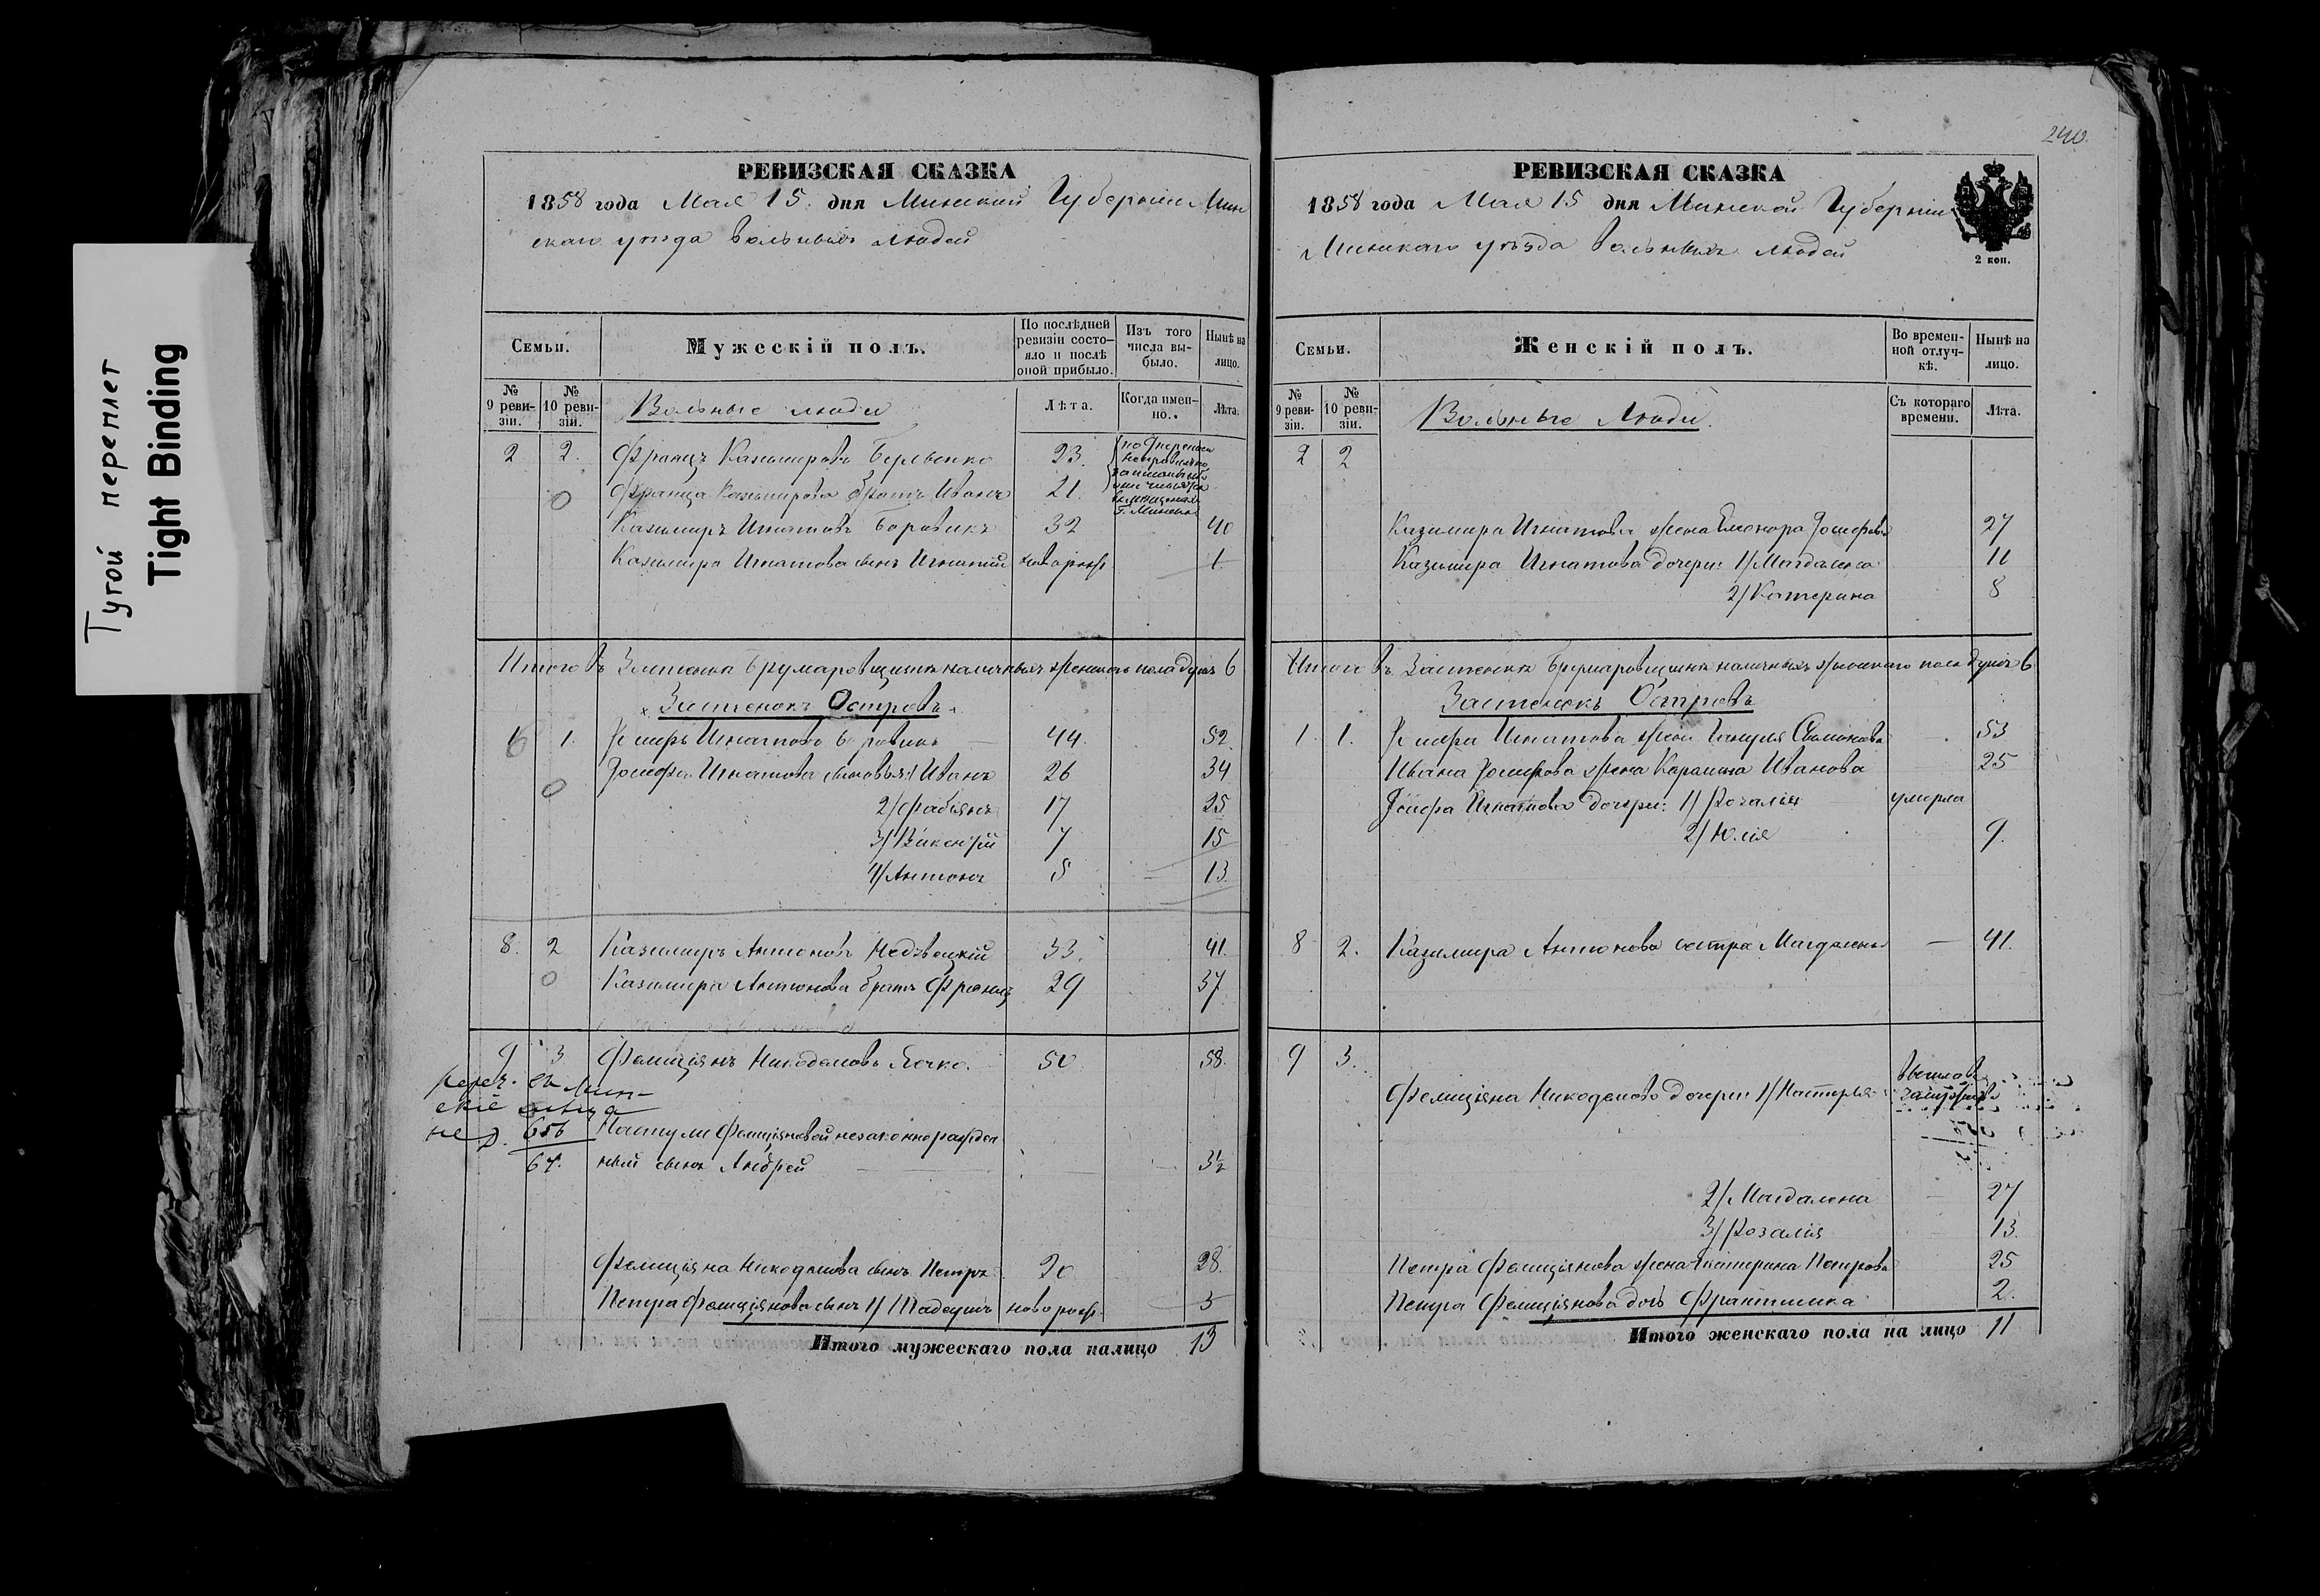 Тугой переплет
Tight Binding
РЕВИЗСКАЯ СКАЗКА
1858 года Мая 15. дня Минской Губернии Мин
скаго уѣзда вольныхъ людей
Семьи.
Мужескій полъ.
По послѣдней ревизіи состо-
яло и послѣ оной прибыло.
Изъ того числа вы-
было.
Нынѣ на лицо.
№ 9 реви-
зіи.
№ 10 реви-
зіи.
Вольные люди
Лѣта.
Когда имен-
но.
Лѣта.
2 2. Францъ Казимировъ 23.
Франца Казимирова братъ Иванъ 21.
Казимиръ Игнатовъ Боровикъ 32 40
Казимира Игнатова сынъ Игнатій новорож 1
Итого въ Застенкѣ наличныхъ мужескаго пола душъ 6
Застенокъ Островъ
1. Іосифъ Игнатовъ Боровикъ 44. 52.
Іосифа Игнатова сыновья: 1/ Иванъ 26 34
2/ Фабіянъ 17 25
3/ Викентій 7 15
4/ Антонъ 5 13.
8. 2 Казимиръ Антоновъ Недзвецкій 33. 41.
Казимира Антонова братъ Францъ 29 37
9 3 Фелиціянъ Никодемовъ 50 58.
656
67.
Фелиціяновой незаконнорожден
ный сынъ Андрей 3½
Фелиціяна Никодемова сынъ Петръ 20 28.
Петра Фелиціянова сынъ 1/ Тадеушъ новорож. 3
Итого мужескаго пола налицо 13
240.
РЕВИЗСКАЯ СКАЗКА
1858 года Мая 15 дня Минской Губерніи
Минскаго уѣзда вольныхъ людей
2 коп.
Семьи.
Женскій полъ.
Во времен-
ной отлуч-
кѣ.
Нынѣ на лицо.
№ 9 реви-
зіи.
№ 10 реви-
зіи.
Вольные Люди.
Съ котораго времени.
Лѣта.
2 2
Казимира Игнатова жена Елеонора Іосифова 27
Казимира Игнатова дочери: 1/ Магдалена 11
2/ Катерина 8
Итого въ Застенкѣ наличныхъ женскаго пола душъ 6
Застенокъ Островъ
1. 1. Іосифа Игнатова жена 53
Ивана Іосифова жена Каралина Иванова 25
Іосифа Игнатова дочери: 1/ Розалія умерла
2/ Юлія 9.
8 2. Казимира Антонова сестра Магдалена 41.
9 3. Фелиціяна Никодемова дочери: 1/ вышла в замужство
2/ Магдалена 27
3/ Розалія 13.
Петра Фелиціянова жена Катерина Петрова 25
Петра Фелиціянова дочь Франтишка 2.
Итого женскаго пола на лицо 11